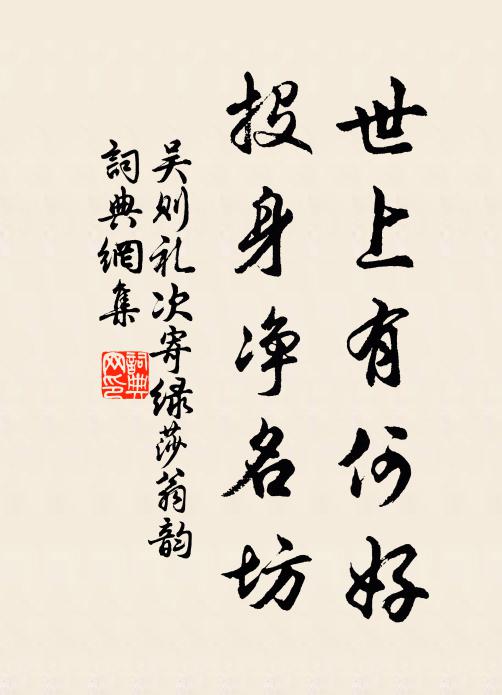 世上有何好
投身净名坊
吴则礼次寄绿莎翁韵
詞典網集
詞典网印